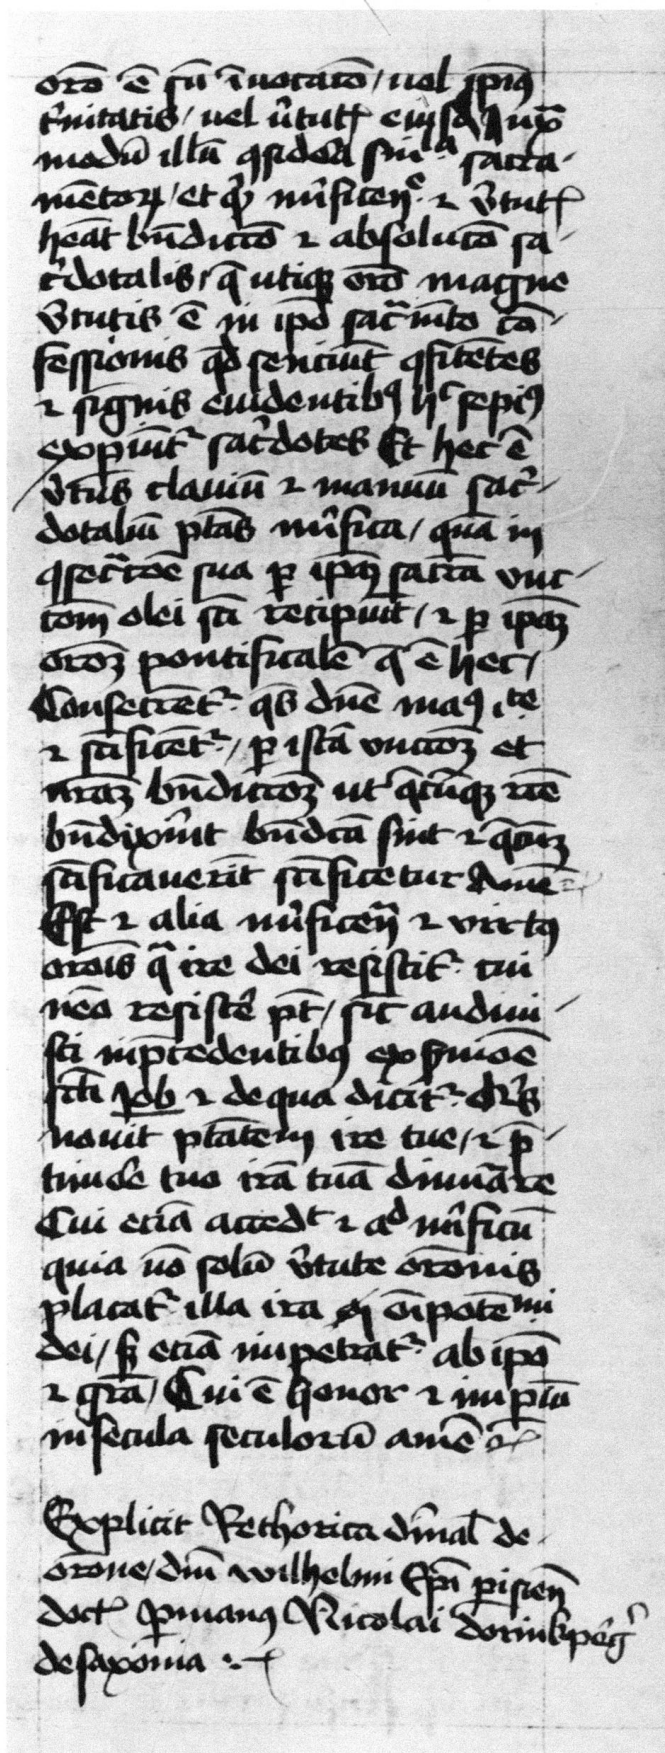 orō ē sū īuocacō / uel ip̄ius
t'nitatis / uel v̄tut̄ eiusdē Iux̄
modū illū ꝯsidera sim̄ sacra-
mētoꝝ / et mīficen̄ ⁊ v̄tut̄
heāt bn̄dictō ⁊ absolutō sa-
c'dotalis / q̄ utiqꝫ orō magne
v̄tutis ē in ip̄o sacͣmēto cō-
fessionis qd senciūt ꝯfitētes
⁊ signis euidentibꝰ hͦ sepiꝰ
expiūtͬ sac'dotes Et hec ē
v̄tus clauiū ⁊ manuū sac'-
dotaliū ptās mīfica / quā in
ꝯsecͣcōe sua ꝑ ip̄aꝫ sacrā vnc-
cōm olei sc̄i recipiūt / ⁊ ꝑ ip̄aꝫ
orōꝫ pontificalē q̄ ē hec /
Consecrētͬ qs dn̄e manꝰ iste
⁊ sc̄ificētͬ / ꝑ istā vnccōꝫ et
nr̄aꝫ bn̄dictōꝫ ut q̄cūqꝫ rite
bn̄dixīnt bn̄dcā sint ⁊ q̄cūqꝫ
sc̄ificauerīt sc̄ificetur Amē
Est ⁊ alia mīficen̄ ⁊ virtꝰ
orōis qͣ ire dei resistitͬ cui
nēo resistē pt̄ / sic̄ audiui-
sti inp̄cedentibꝰ ex s̄mōe
sc̄i Job ⁊ de qua dicitͬ Quis
nouit ptātem ire tue / ⁊ p̄
timōe tuo irā tuā dinūare
Cui eciā accedt ⁊ ad mīficū
quia nō solū v̄tute orōnis
placatͬ illa ira oīpotētis
dei / sꝫ eciā impetratͬ ab ip̄o
⁊ grā / Cui ē honor ⁊ impiū
in secula seculorū amē ⁊c̄

Explicit Rethorica diīal de
orōne / dn̄i wilhelmi Ep̄i ꝑisien̄
doct̄ ꝑ manꝰ Nicolai
de saxonia